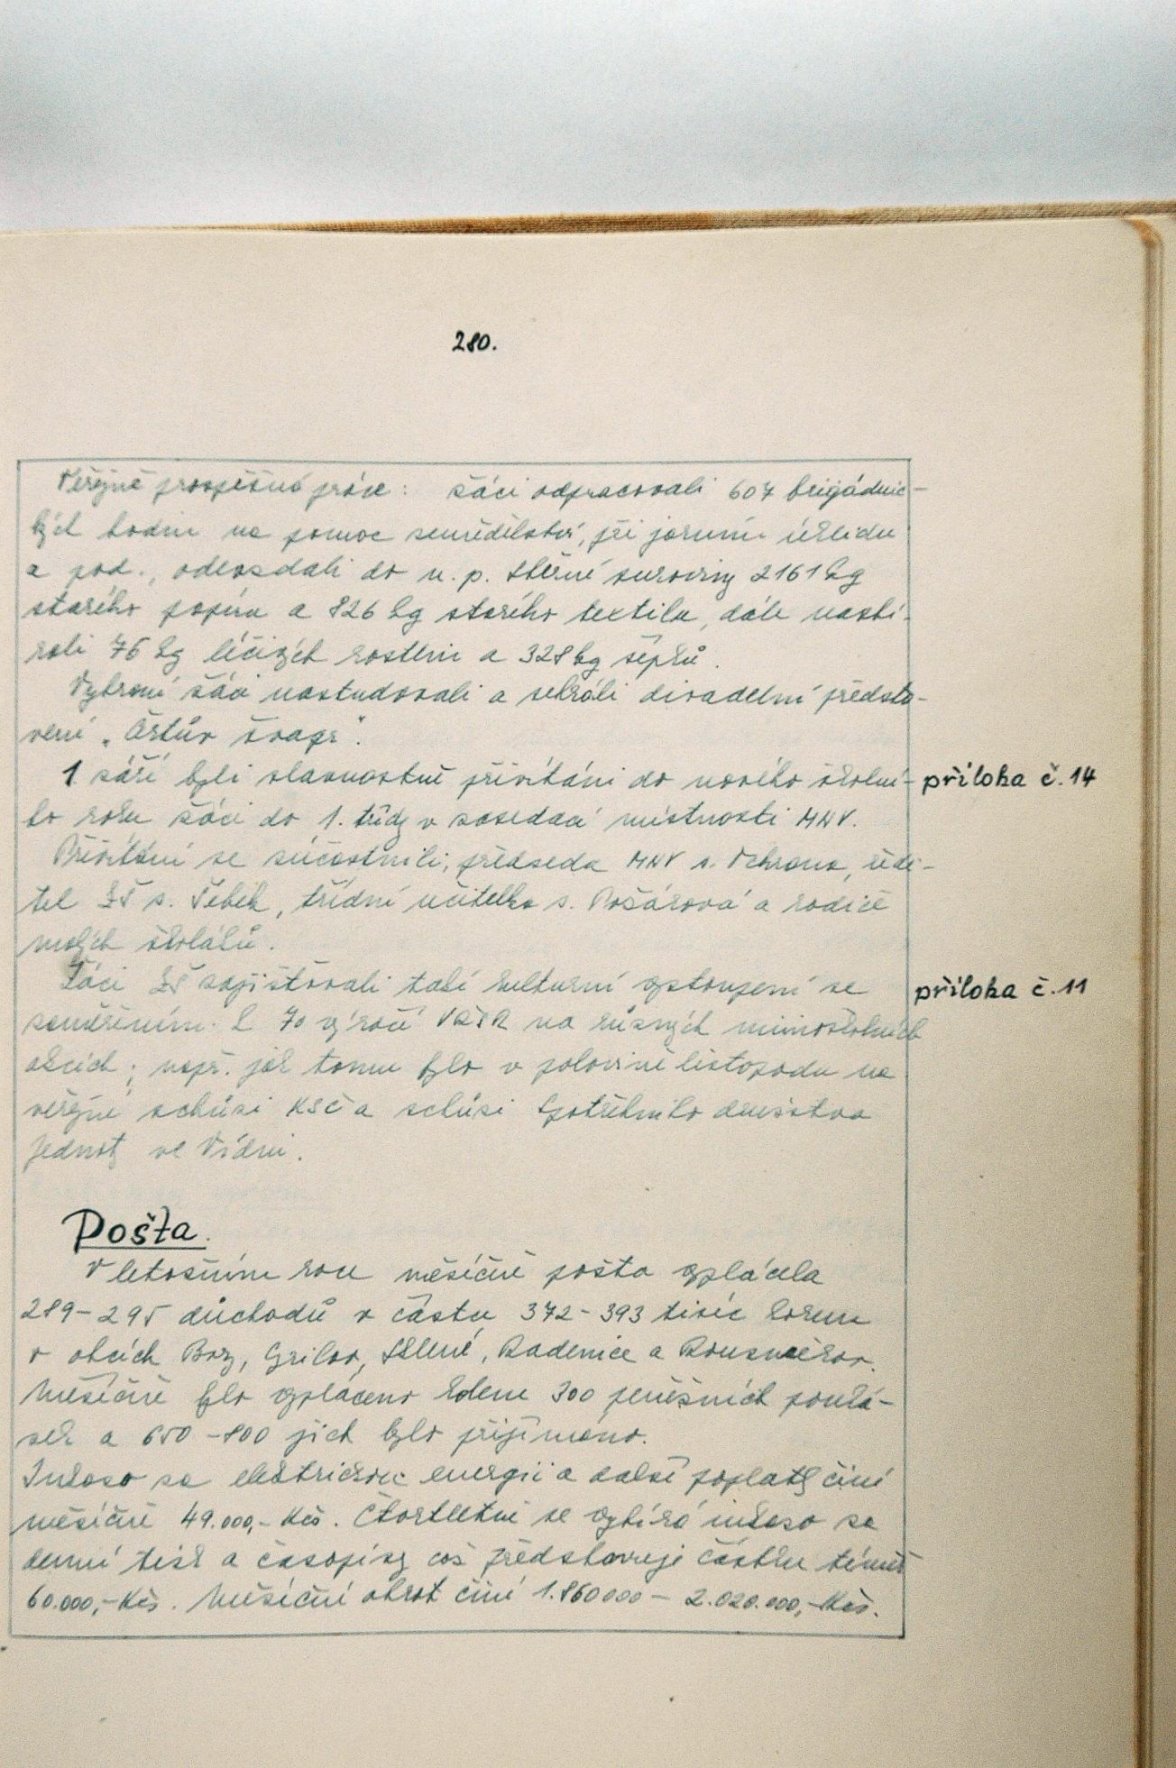 280.
Veřejně prospěšná práce: žáci odpracovali 607 brigádnic-
kých hodin na pomoc zemědělství, při jarním úklidu
a pod., odevzdali do n. p. Sběrné suroviny 2161 kg
starého papíru a 826 kg starého textilu, dále nasbí-
rali 76 kg léčivých rostlin a 328 kg šípků.
Vybraní žáci nastudovali a sehráli divadelní předsta-
vení „Čertův švagr".
1 září byli slavnostně přivítáni do nového školní- příloha č. 14
ho roku žáci do 1. třídy v zasedací místnosti MNV.
Přivítání se zúčastnili; předseda MNV s. Vchrona, ředi-
tel ZŠ s. Šebek, třídní učitelka s. Požárová a rodiče
malých školáků.
Žáci ZŠ zajišťovali také kulturní vystoupení se příloha č. 11
zaměřením k 70 výročí VŘSR na různých mimoškolních
akcích; např. jak tomu bylo v polovině listopadu na
veřejné schůzi KSČ a schůzi Spotřebního družstva
Jednoty ve Vídni.
Pošta.
V letošním roce měsíčně pošta vyplácela
289-295 důchodů v částce 372-393 tisíc korun
v obcích Bory, Cyrilov, Sklené, Radenice a Rousměrov.
Měsíčně bylo vypláceno kolem 300 peněžních pouká-
zek a 650-800 jich bylo přijímáno.
Inkaso za elektrickou energii a další poplatky činí
měsíčně 49.000,- Kčs. Čtvrtletně se vybírá inkaso za
denní tisk a časopisy což představuje částku téměř
60.000,- Kčs. Měsíční obrat činí 1.860000 - 2.020.000,- Kčs.